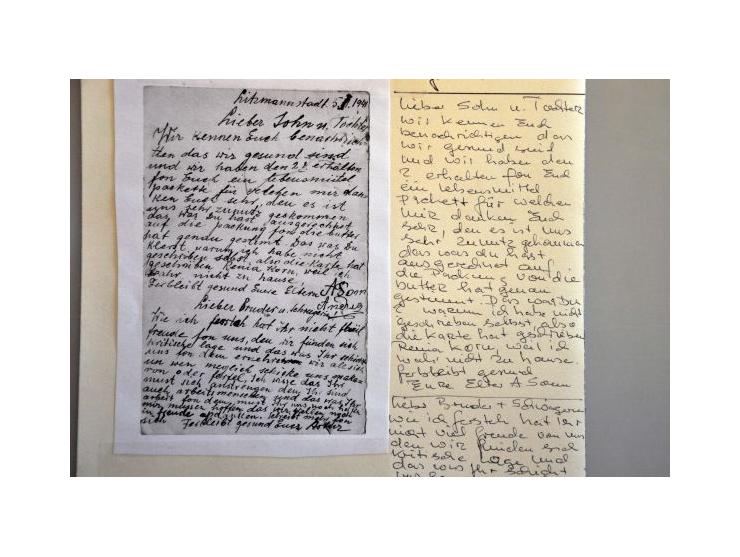 Litzmannstadt 5. 1941
Lieber Sohn u. Tochter
Wir kennen Euch benachrich-
tten das wir gesund sind
und wir haben den 2 erhalten
fon Euch ein lebensmittel
packett für welchen mir dan-
ken Euch sehr, den es ist
uns sehr zunutz gekommen
das was Du hast ausgerechnet
auf die packung fon die butter
hat genau gestimt Das was Du
klagst warum ich habe nicht
geschriben selbst, also die karte hat
geschriben Renia Korn, weil ich
wahr nicht zu hause.
Ferbleibt gesund Eure Eltern ASonn
Lieber Bruder u. Schwegerin
Wie ich fersteh hat ihr nicht fiel
freude fon uns, den wir finden sich
kritische lage und das was Ihr schickt
uns fon dem ernehren wir alle sich
un wen meglich schicke uns
ron oder Ich wise das Ihr
must sich anstrengen den Ihr sind
auch arbeitsmenschen und das was Ihr
arbeit fon dem must Ihr uns noch helfen
mir missen hoffen das wir
in freude
Ferbleibt gesund Euer Bruder
lieber Sohn u. Tochter
wir kennen Euch
benachrichtigen das
wir gesund seid
und wir haben den
2 erhalten fon Euch
ein lebensmittel
Packett für welchen
mir danken Euch
sehr, den es ist, uns
sehr zunutz gekommen
das was du hast
ausgerechnet auf
die Packung von die
butter hat genau
gestimmt. Das was du
? warum ich habe nicht
geschrieben selbst, also
die karte hat geschrieben
Renia Korn weil ich
wahr nicht zu hause.
ferbleibt gesund
Eure Elter A Sonn
lieber Bruder + Schwägerin
wie ich fersteh hat Ihr
nicht viel freude von uns
den wir finden sich
kritische lage und
das was Ihr schickt